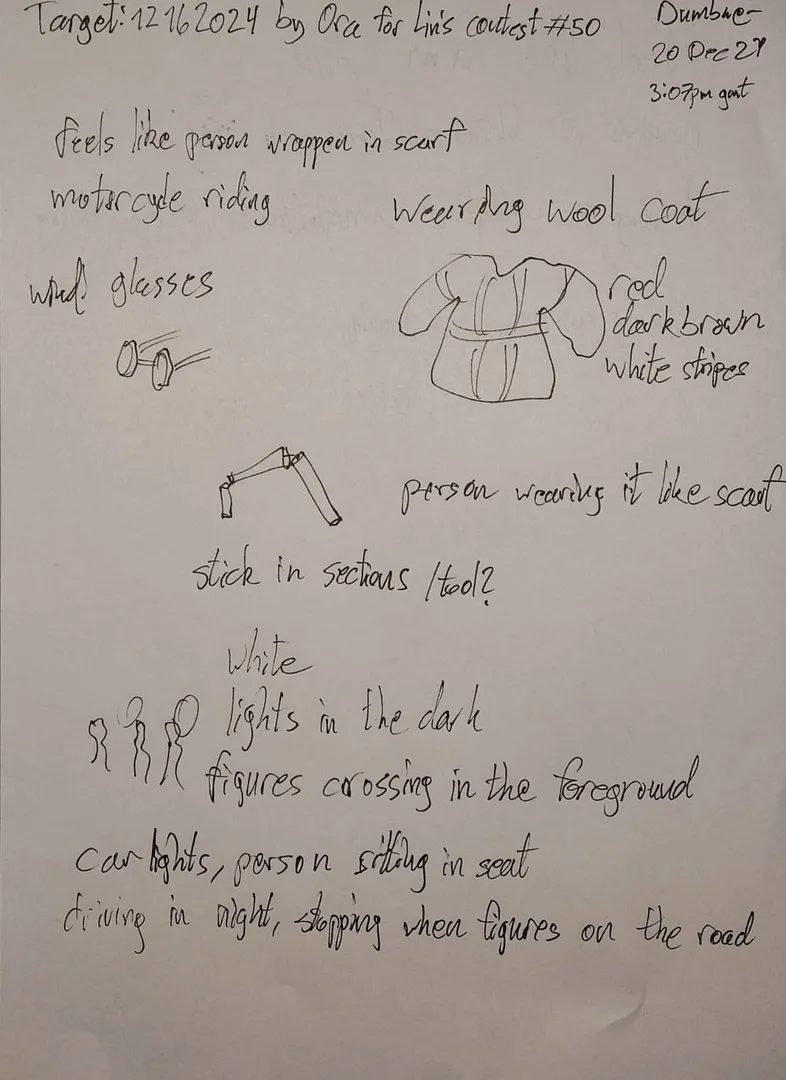 Target: 12162024 by Ora for Lin's contest #50
20 Dec 24
3:07pm gmt
feels like person wrapped in scarf
motorcycle riding
wearing wool coat
wind glasses
red
dark brown
white stripes
person wearing it like scarf
stick in sections /tool?
white
lights in the dark
figures crossing in the foreground
car lights, person sitting in seat
driving in night, stopping when figures on the road